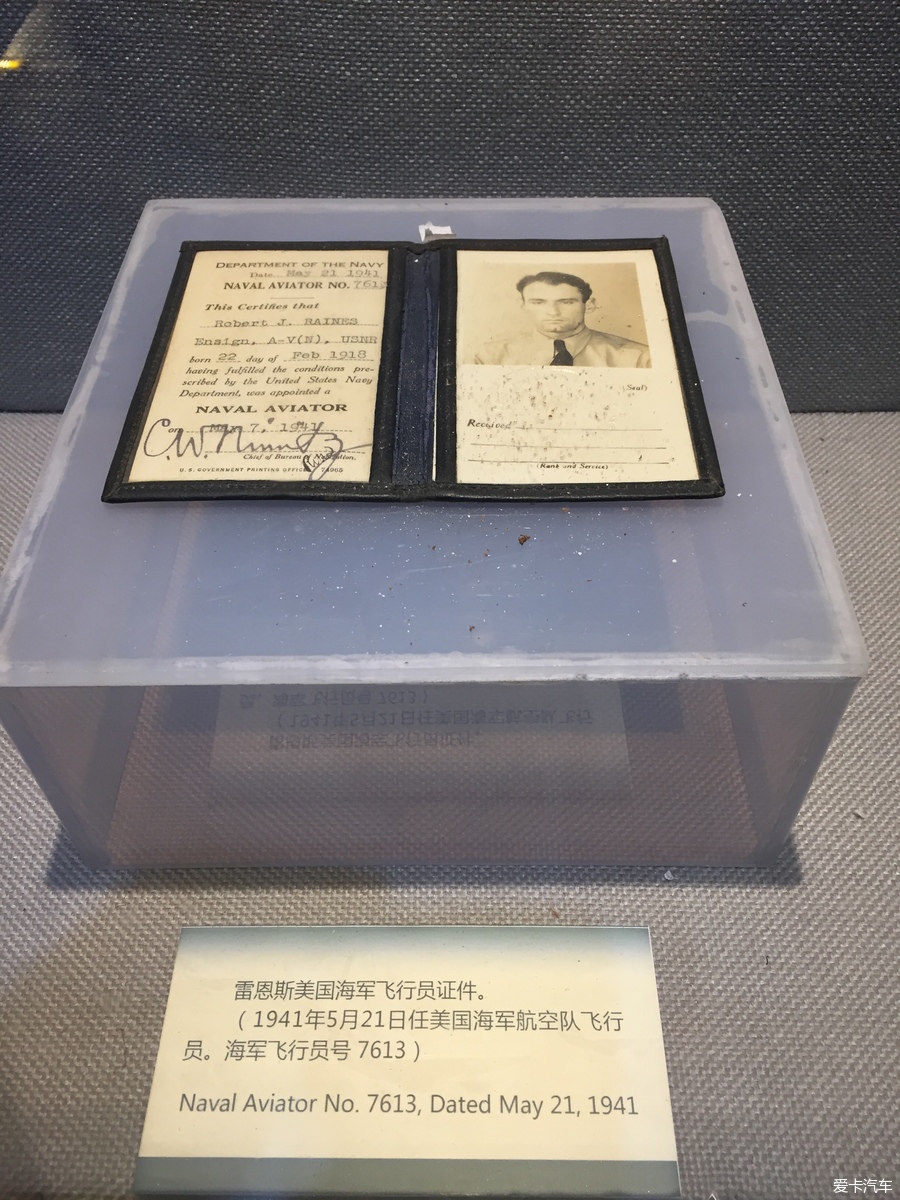 DEPARTMENT OF THE NAVY
Date May 21 1941
NAVAL AVIATOR NO. 7613
This Certifies that
Robert J. RAINES
Ensign, A-V(N), USNR
born 22 day of Feb 1918
having fulfilled the conditions pre-
scribed by the United States Navy
Department, was appointed a
NAVAL AVIATOR
on May 7, 1941
C.W. Nimitz
Chief of Bureau of Navigation.
U. S. GOVERNMENT PRINTING OFFICE 74965
(Seal)
Received
(Rank and Service)
雷恩斯美国海军飞行员证件。
（1941年5月21日任美国海军航空队飞行
员。海军飞行员号 7613）
Naval Aviator No. 7613, Dated May 21, 1941
爱卡汽车